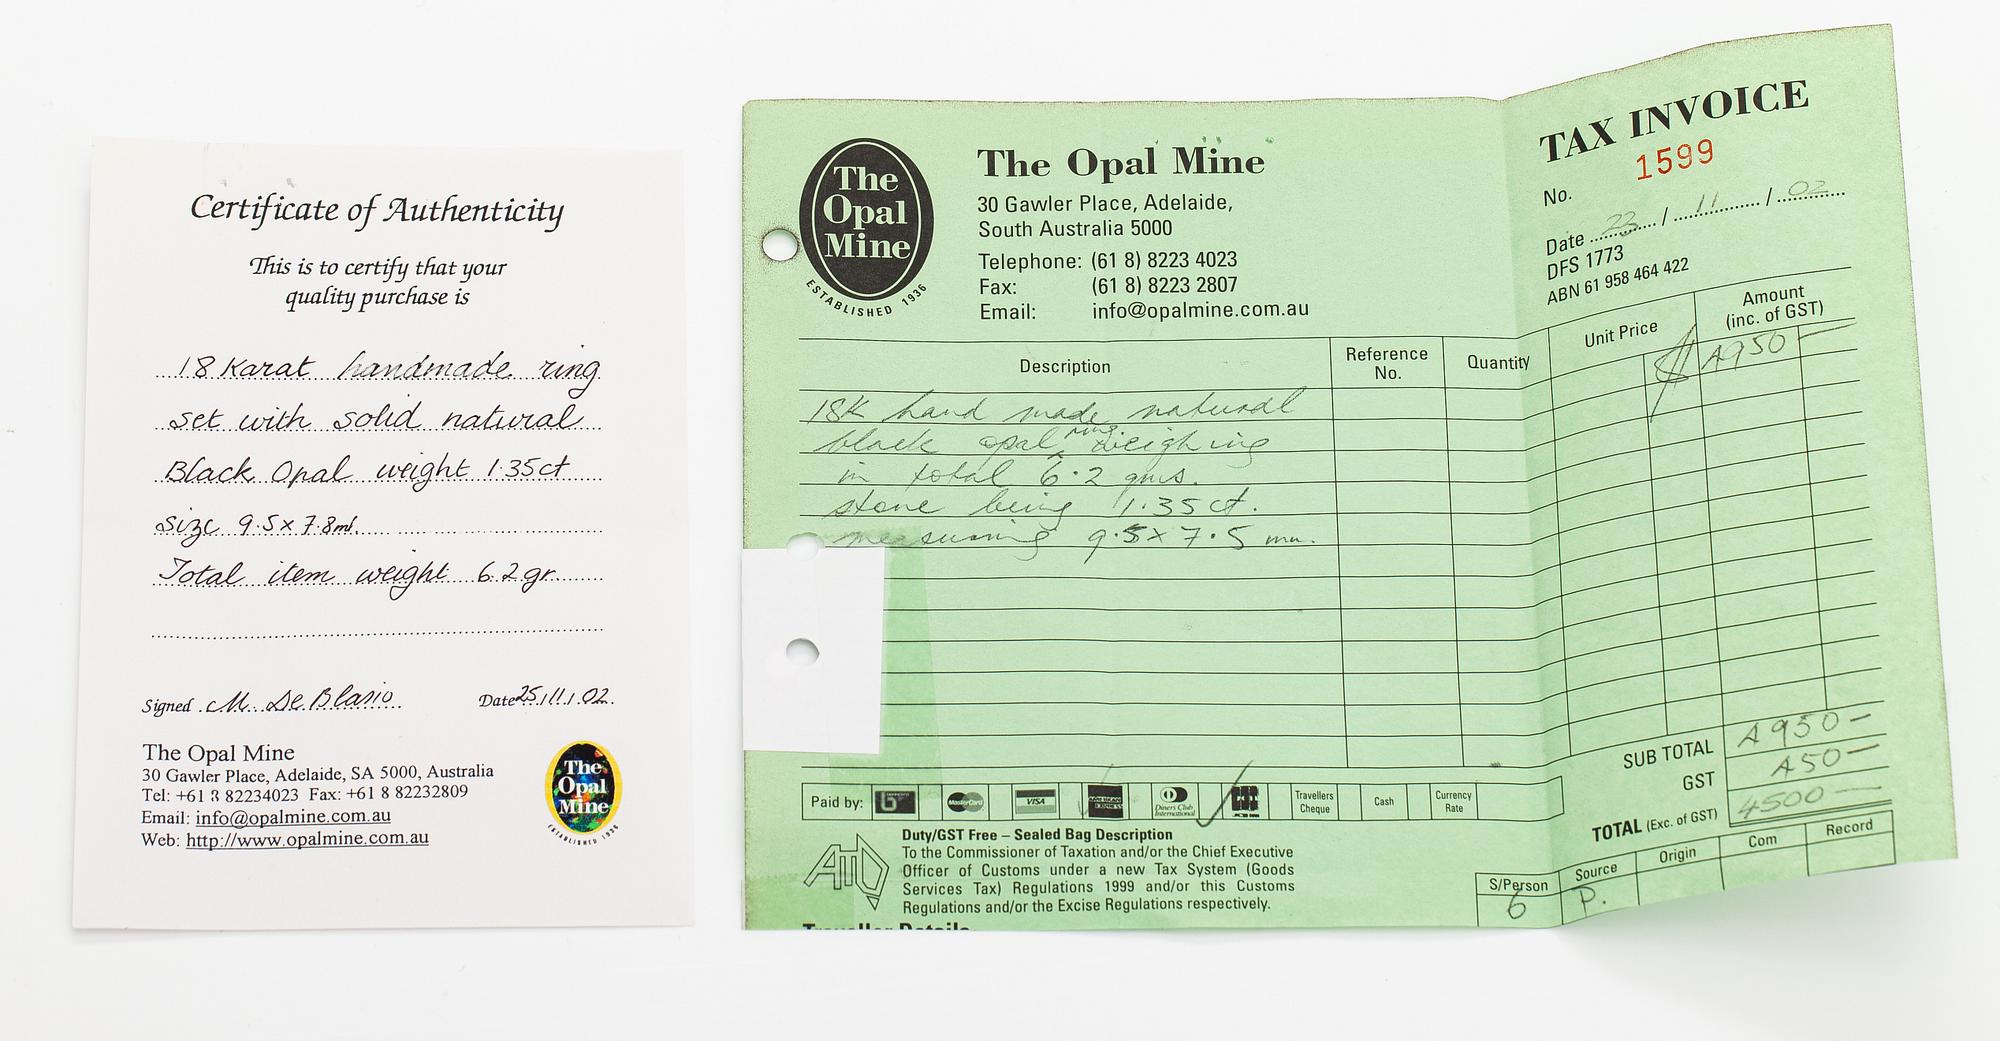 Certificate of Authenticity
This is to certify that your
quality purchase is
18 Karat handmade ring
set with solid natural
Black Opal weight 1.35ct
size 9.5 x 7.8ml.
Total item weight 6.2gr.
Signed M. De Blasio Date 25/11/02
The Opal Mine
30 Gawler Place, Adelaide, SA 5000, Australia
Tel: +61 8 82234023 Fax: +61 8 82232809
Email: info@opalmine.com.au
Web: http://www.opalmine.com.au
The
Opal
Mine
ESTABLISHED 1936
The
Opal
Mine
ESTABLISHED 1936
The Opal Mine
30 Gawler Place, Adelaide,
South Australia 5000
Telephone: (61 8) 8223 4023
Fax: (61 8) 8223 2807
Email: info@opalmine.com.au
TAX INVOICE
No. 1599
Date 23 / 11 / 02
DFS 1773
ABN 61 958 464 422
Description
Reference
No.
Quantity
Unit Price
Amount
(inc. of GST)
18K hand made natural
black opal ring weighing
in total 6.2 gms.
stone being 1.35ct.
measuring 9.5 x 7.5 mm.
$
SUB TOTAL
GST
TOTAL (Exc. of GST) 4500 —
Paid by:
MasterCard
VISA
AMERICAN
EXPRESS
Diners Club
International
JCB
Travellers
Cheque
Cash
Currency
Rate
Duty/GST Free – Sealed Bag Description
To the Commissioner of Taxation and/or the Chief Executive
Officer of Customs under a new Tax System (Goods
Services Tax) Regulations 1999 and/or this Customs
Regulations and/or the Excise Regulations respectively.
S/Person
6
Source
P.
Origin
Com
Record
Traveller Details